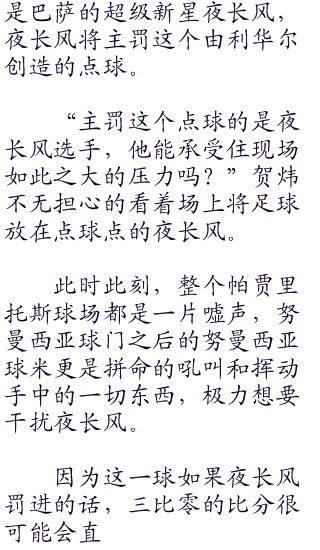 是巴萨的超级新星夜长风，
夜长风将主罚这个由利华尔
创造的点球。
“主罚这个点球的是夜
长风选手，他能承受住现场
如此之大的压力吗？”贺炜
不无担心的看着场上将足球
放在点球点的夜长风。
此时此刻，整个帕贾里
托斯球场都是一片嘘声，努
曼西亚球门之后的努曼西亚
球米更是拼命的吼叫和挥动
手中的一切东西，极力想要
干扰夜长风。
因为这一球如果夜长风
罚进的话，三比零的比分很
可能会直